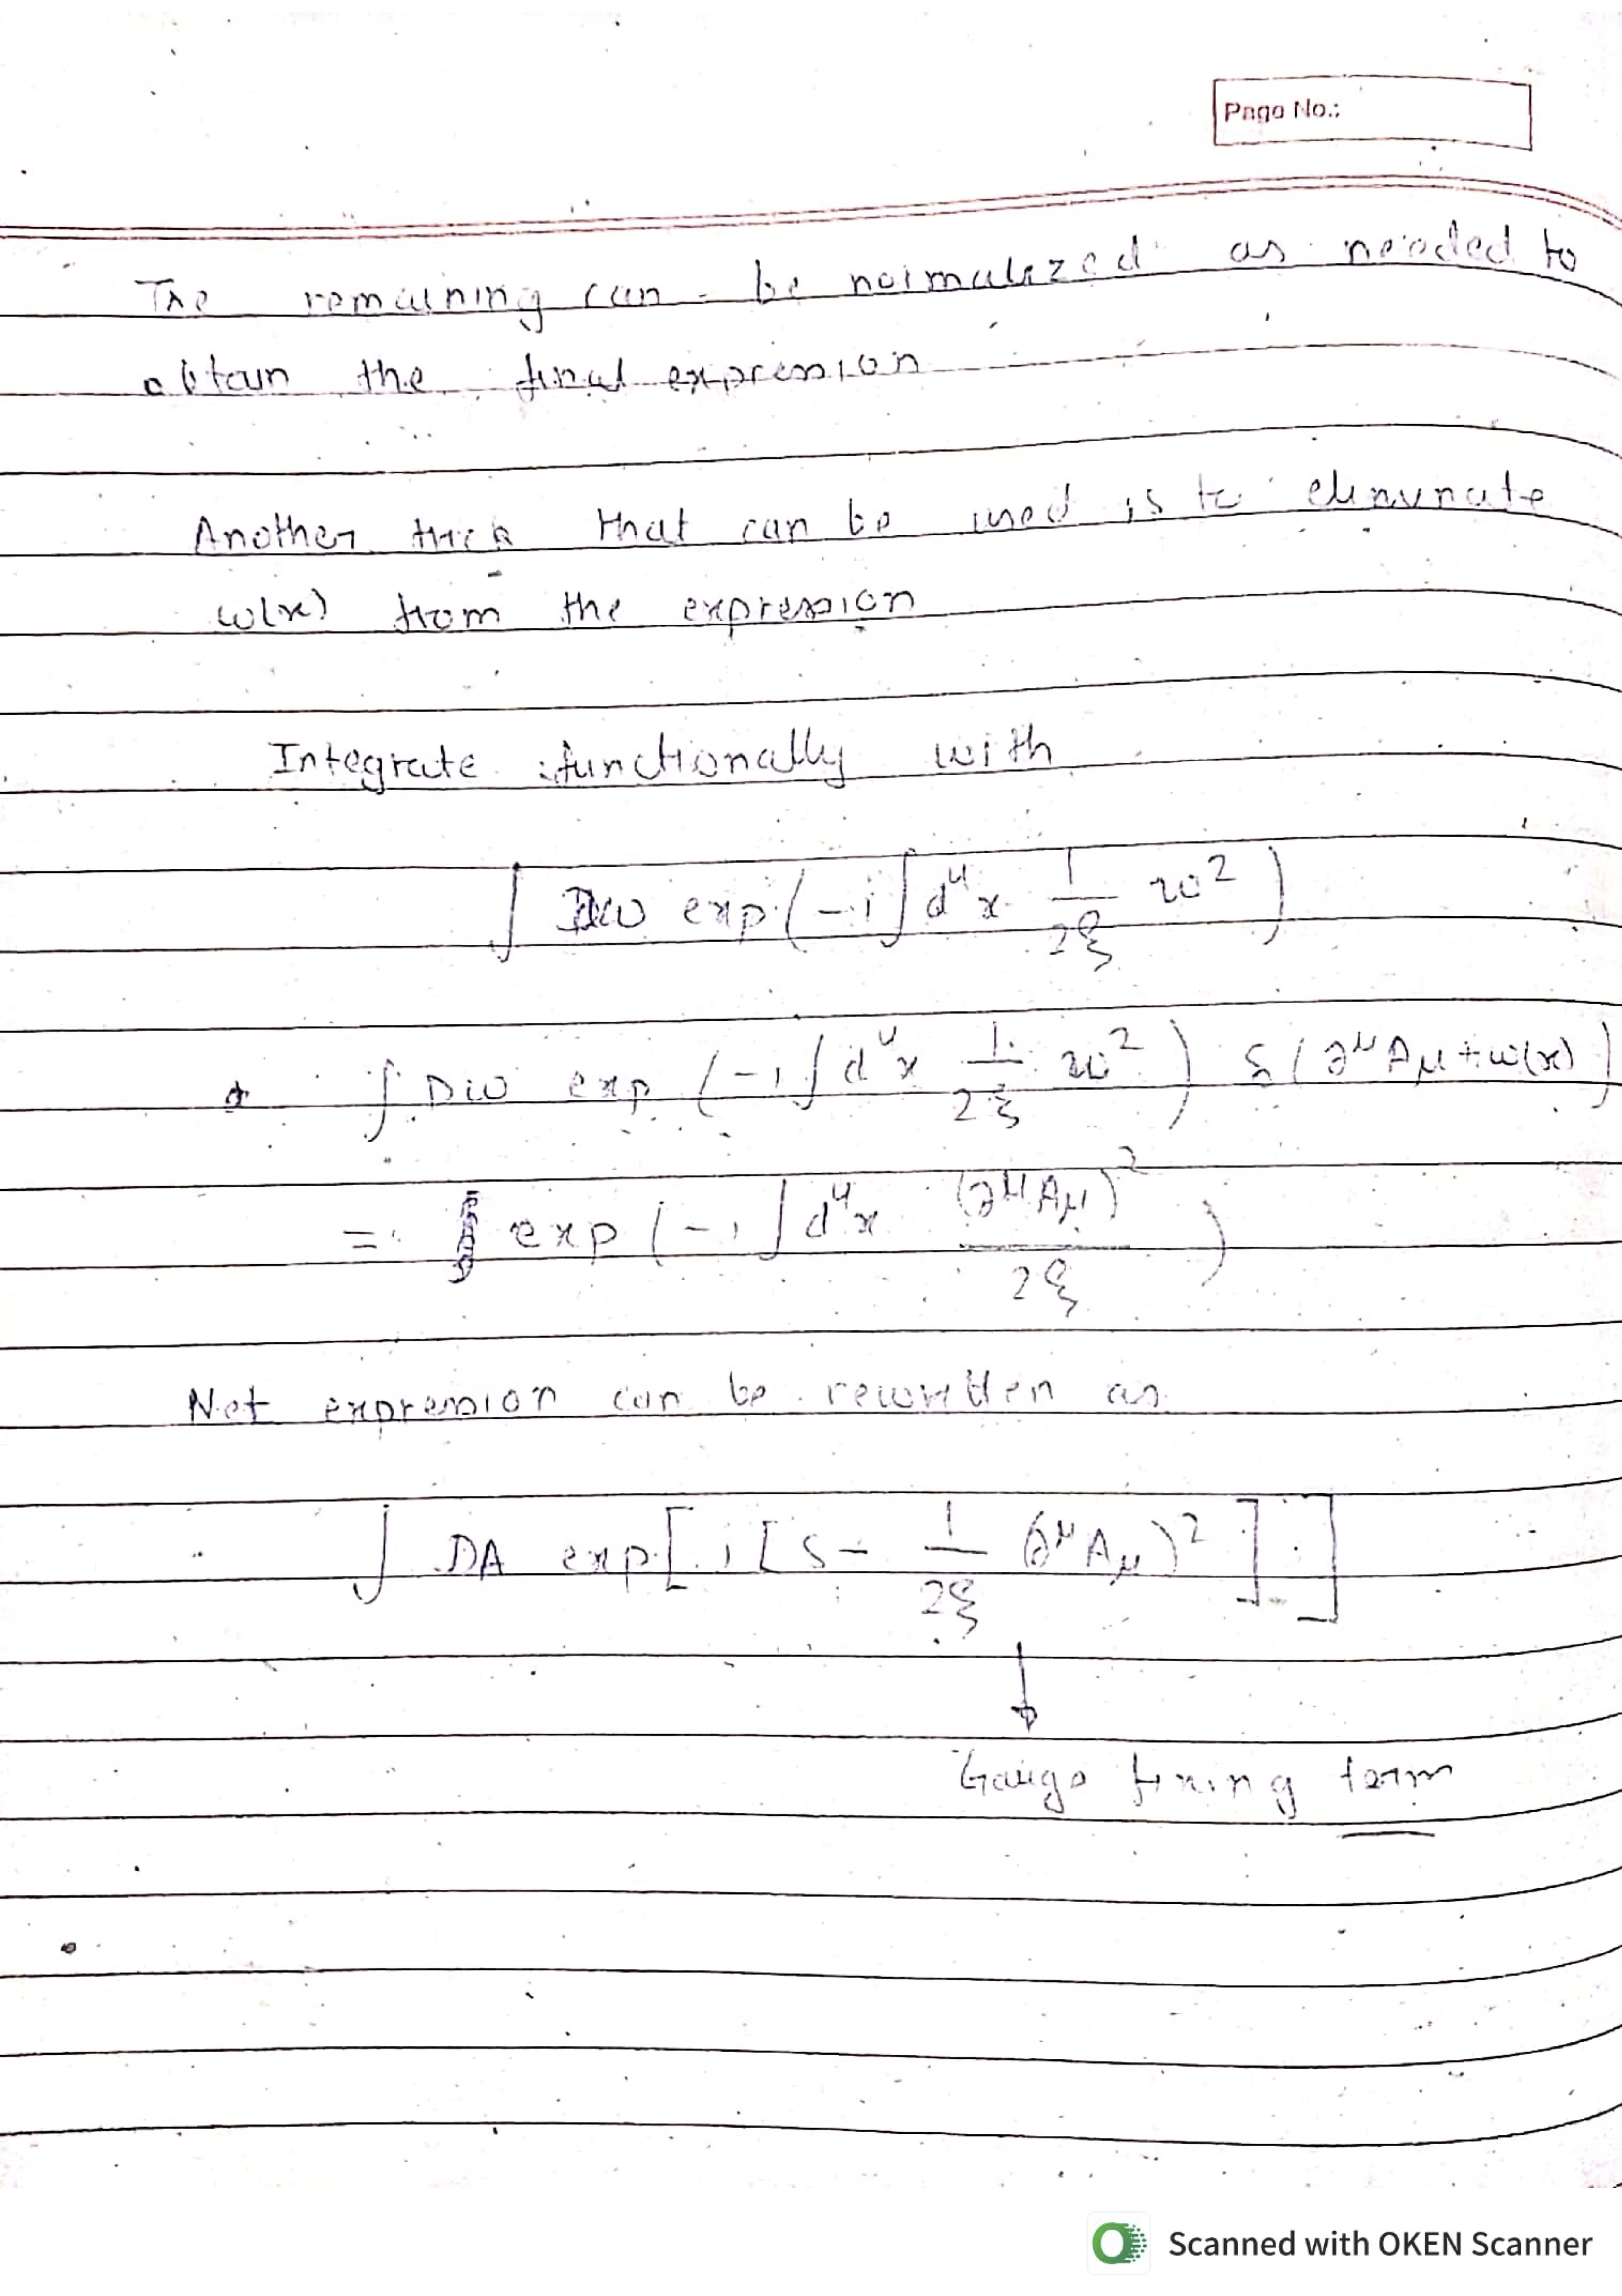 Page No.:
The remaining can be normalized as needed to
obtain the final expression
Another trick that can be used is to eliminate
ω(x) from the expression
Integrate functionally with
∫ Dω exp (-i ∫ d⁴x 1/2ξ ω²)
∫ Dω exp (-i ∫ d⁴x 1/2ξ ω²) δ(∂^μ A_μ + ω(x))
= exp (-i ∫ d⁴x (∂^μ A_μ)²/2ξ)
Net expression can be rewritten as
∫ DA exp [i [S - 1/2ξ (∂^μ A_μ)²]]
↓
Gauge fixing term
Scanned with OKEN Scanner